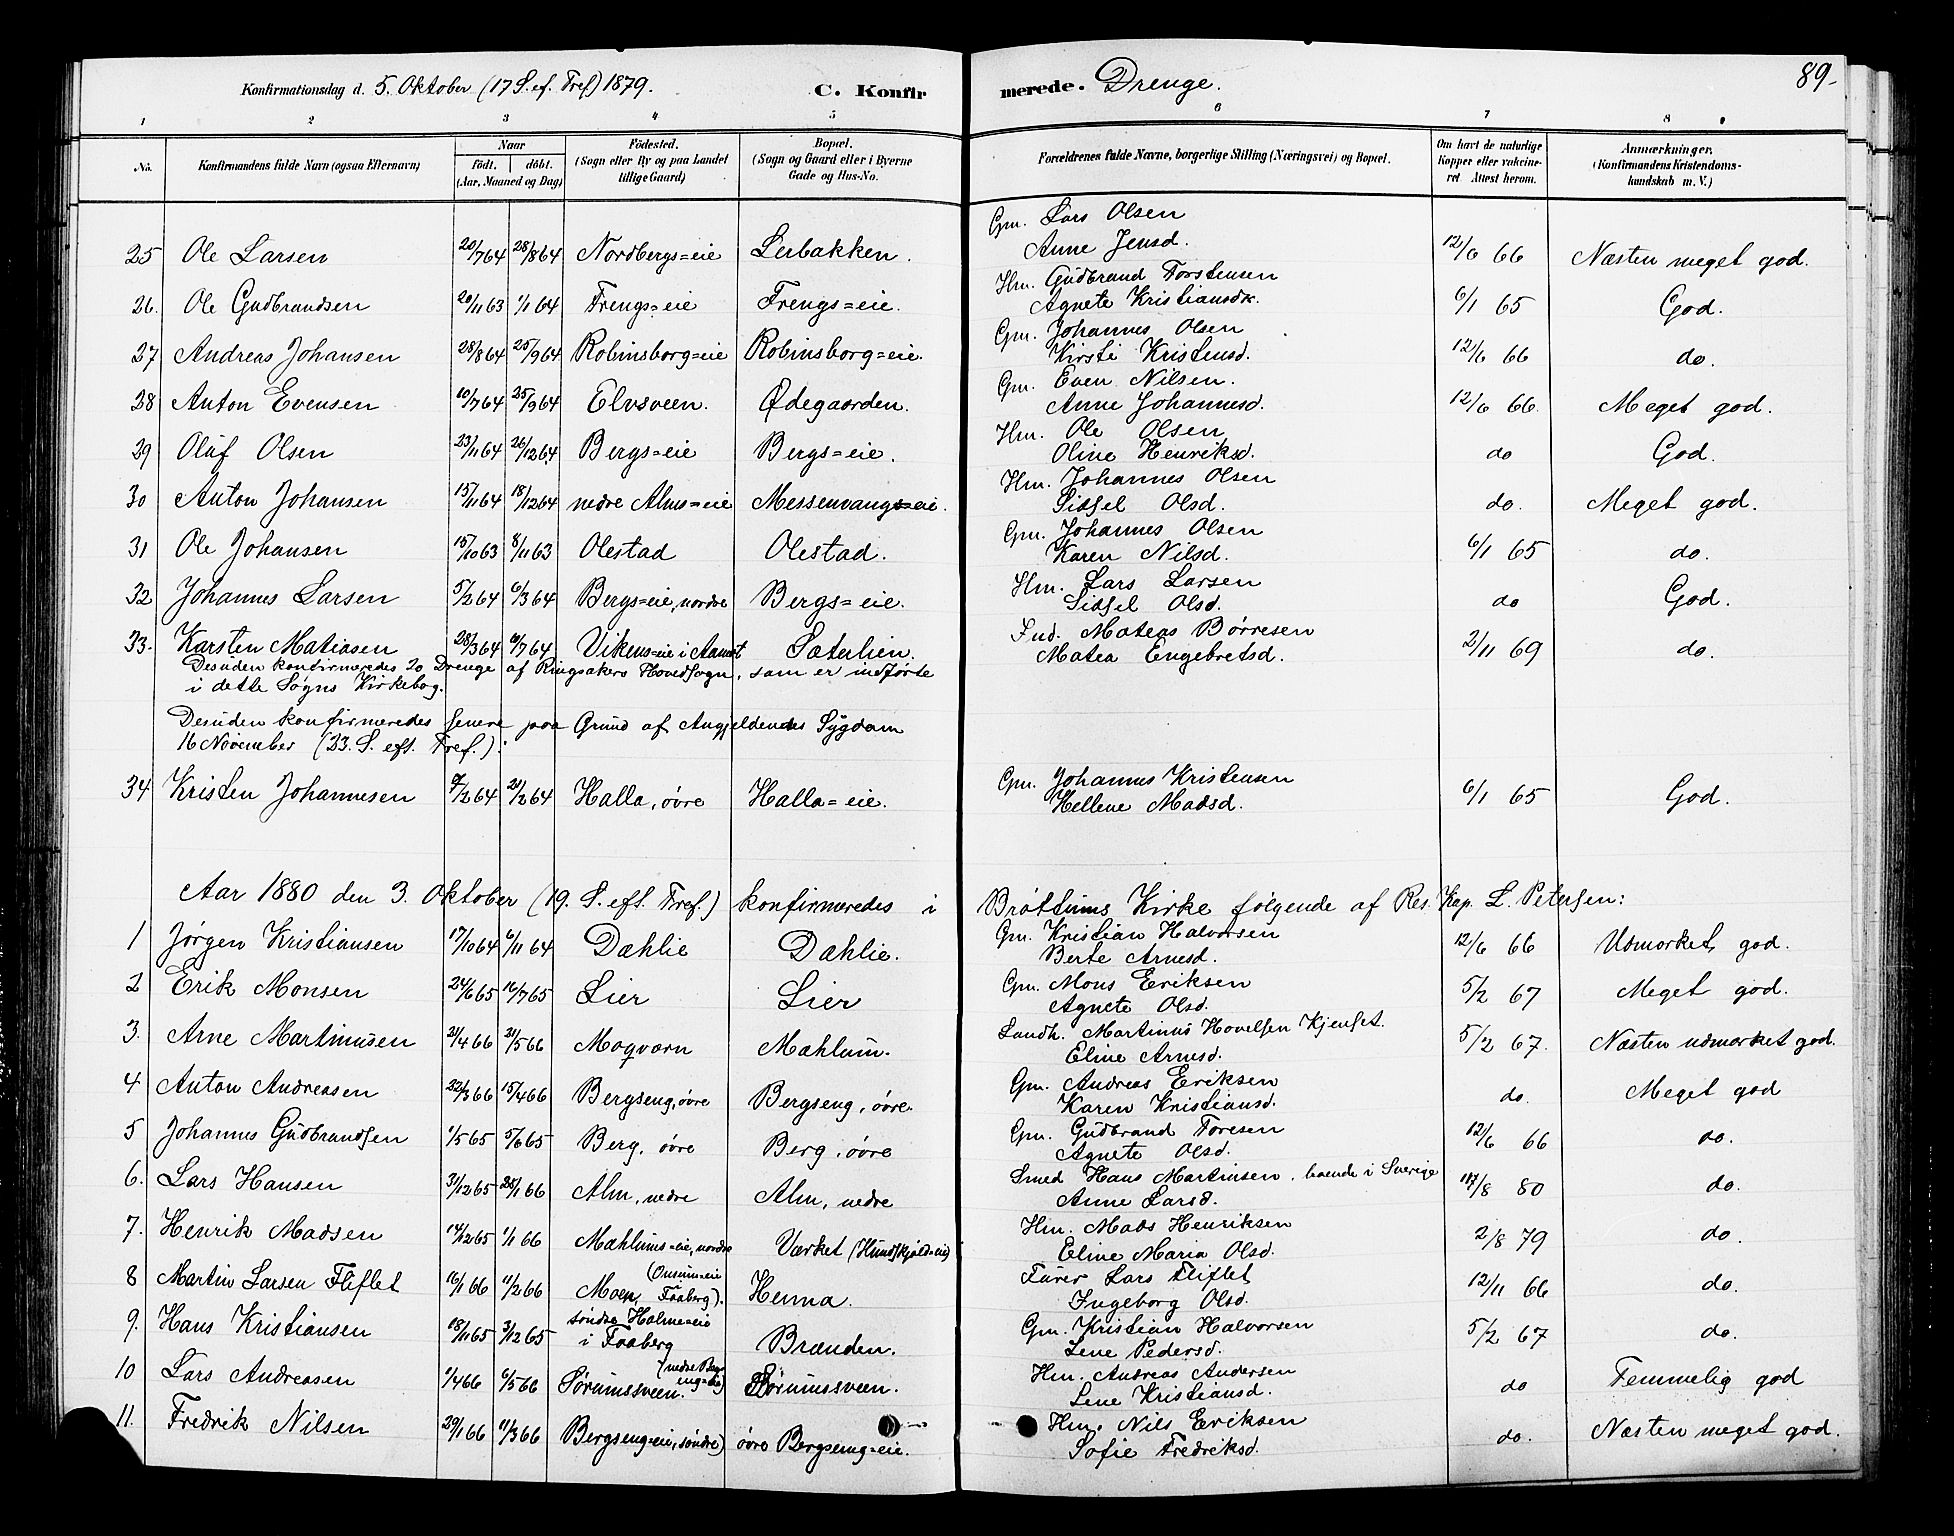 89.
Konfirmationsdag d. 5. Oktober (17 S. ef. Tref) 1879. C. Konfirmerede. Drenge.
1 2 3 4 5 6 7 8 9
No. Konfirmandens fulde Navn (ogsaa Efternavn) Naar født. døbt. (Aar, Maaned og Dag) Fødested. (Sogn eller By og paa Landet tillige Gaard) Bopæl. (Sogn og Gaard eller i Byerne Gade og Hus-No. Forældrenes fulde Navne, borgerlige Stilling (Næringsvei) og Bopæl. Om havt de naturlige Kopper eller vakcineret Attest herom. Anmærkninger. (Konfirmandens Kristendomskundskab m. V.)
25 Ole Larsen 20/7 64 28/8 64 Nordbergs=eie Lerbakken. Gm. Lars Olsen
Anne Jensd. 12/6 66 Næsten meget god.
26. Ole Gudbrandsen 20/11 63 1/1 64 Frengs=eie Frengs=eie. Hm. Gudbrand Torstensen
Agnete Kristiansdr. 6/1 65 God.
27 Andreas Johansen 28/8 64 25/9 64 Robinsborg=eie Robinsborg=eie. Gm. Johannes Olsen
Kirsti Kristensd. 12/6 66 do.
28 Anton Evensen 10/7 64 25/9 64 Elvsveen. Ødegaarden. Gm. Even Nilsen.
Anne Johannesd. 12/6 66. Meget god.
29 Oluf Olsen 23/11 64 26/12 64 Bergs=eie Bergs=eie. Hm. Ole Olsen
Oline Henriksd. do God.
30 Anton Johansen 15/11 64 18/12 64 nedre Alms=eie Messenvangs=eie. Hm. Johannes Olsen
Sidsel Olsd. do. Meget god.
31 Ole Johansen 15/10 63 8/11 63 Olestad Olestad. Gm. Johannes Olsen
Karen Nilsd. 6/1 65 do.
32 Johannes Larsen 5/2 64 6/3 64 Bergs=eie, nordre Bergs=eie. Hm. Lars Larsen
Sidsel Olsd. do God.
33. Karsten Matiasen 28/3 64 10/7 64 Vikens=eie i Aamot Sæterlien. Ind. Mateas Børresen
Matea Engebretsd. 2/11 69 do.
Desuden konfirmeredes 20 Drenge af Ringsakers Hovedsogn, som er indførte
i dette Sogns Kirkebog.
Desuden konfirmeredes senere paa Grund af Angjeldendes Sygdom
16 November (23. S. eft. Tref.):
34 Kristen Johannesen 7/2 64 21/2 64 Halla, øvre Halla=eie. Gm. Johannes Kristensen
Hellene Madsd. 6/1 65 God.
Aar 1880 den 3. Oktober (19. S. eft. Tref.) konfirmeredes i Brøttums Kirke følgende af Res. Kap. L. Petersen:
1 Jørgen Kristiansen 17/10 64 6/11 64 Dæhlie Dæhlie. Gm. Kristian Halvorsen
Berte Arnesd. 12/6 66 Udmærket god.
2 Erik Monsen 24/6 65 16/7 65 Lier Lier Gm. Mons Eriksen
Agnete Olsd. 5/2 67 Meget god.
3. Arne Martinusen 21/4 66 21/5 66 Moqvarn Mæhlum. Landh. Martinus Hovelsen Kjenset.
Eline Arnesd. 5/2 67. Næsten udmærket god.
4 Anton Andreasen 22/3 66 15/4 66 Bergseng, øvre Bergseng, øvre. Gm. Andreas Eriksen
Karen Kristiansd. do. Meget god
5 Johannes Gudbrandsen 1/5 65 5/6 65 Berg, øvre Berg, øvre Gm. Gudbrand Toresen
Agnete Olsd. 12/6 66 do.
6. Lars Hansen 31/12 65 28/1 66 Alm, nedre Alm, nedre Smed Hans Martinsen, boende i Sverige
Anne Larsd. 17/8 80 do.
7. Henrik Madsen 14/12 65 1/1 66 Mæhlums=eie, nordre Værket (Hundskjold=eie) Hm. Mads Henriksen
Eline Maria Olsd. 2/8 79 do.
8 Martin Larsen Fliflet 16/1 66 11/2 66 Moen (Onsum=eie Faaberg). Hemma. Fører Lars Fliflet
Ingeborg Olsd. 12/11 66 do.
9. Hans Kristiansen 18/11 65 3/12 65 søndre Holme=eie i Faaberg Brænden. Gm. Kristian Halvorsen
Lene Pedersd. 5/2 67 do.
10 Lars Andreasen 2/4 66 6/5 66 Sørumssveen. Sørumssveen. Hm. Andreas Andersen
Lene Kristiansd. do Temmelig god
11. Fredrik Nilsen 29/1 66 11/3 66 Bergseng=eie, søndre) øvre Bergseng=eie. Hm. Nils Eriksen
Sofie Fredriksd. do. Næsten meget god.